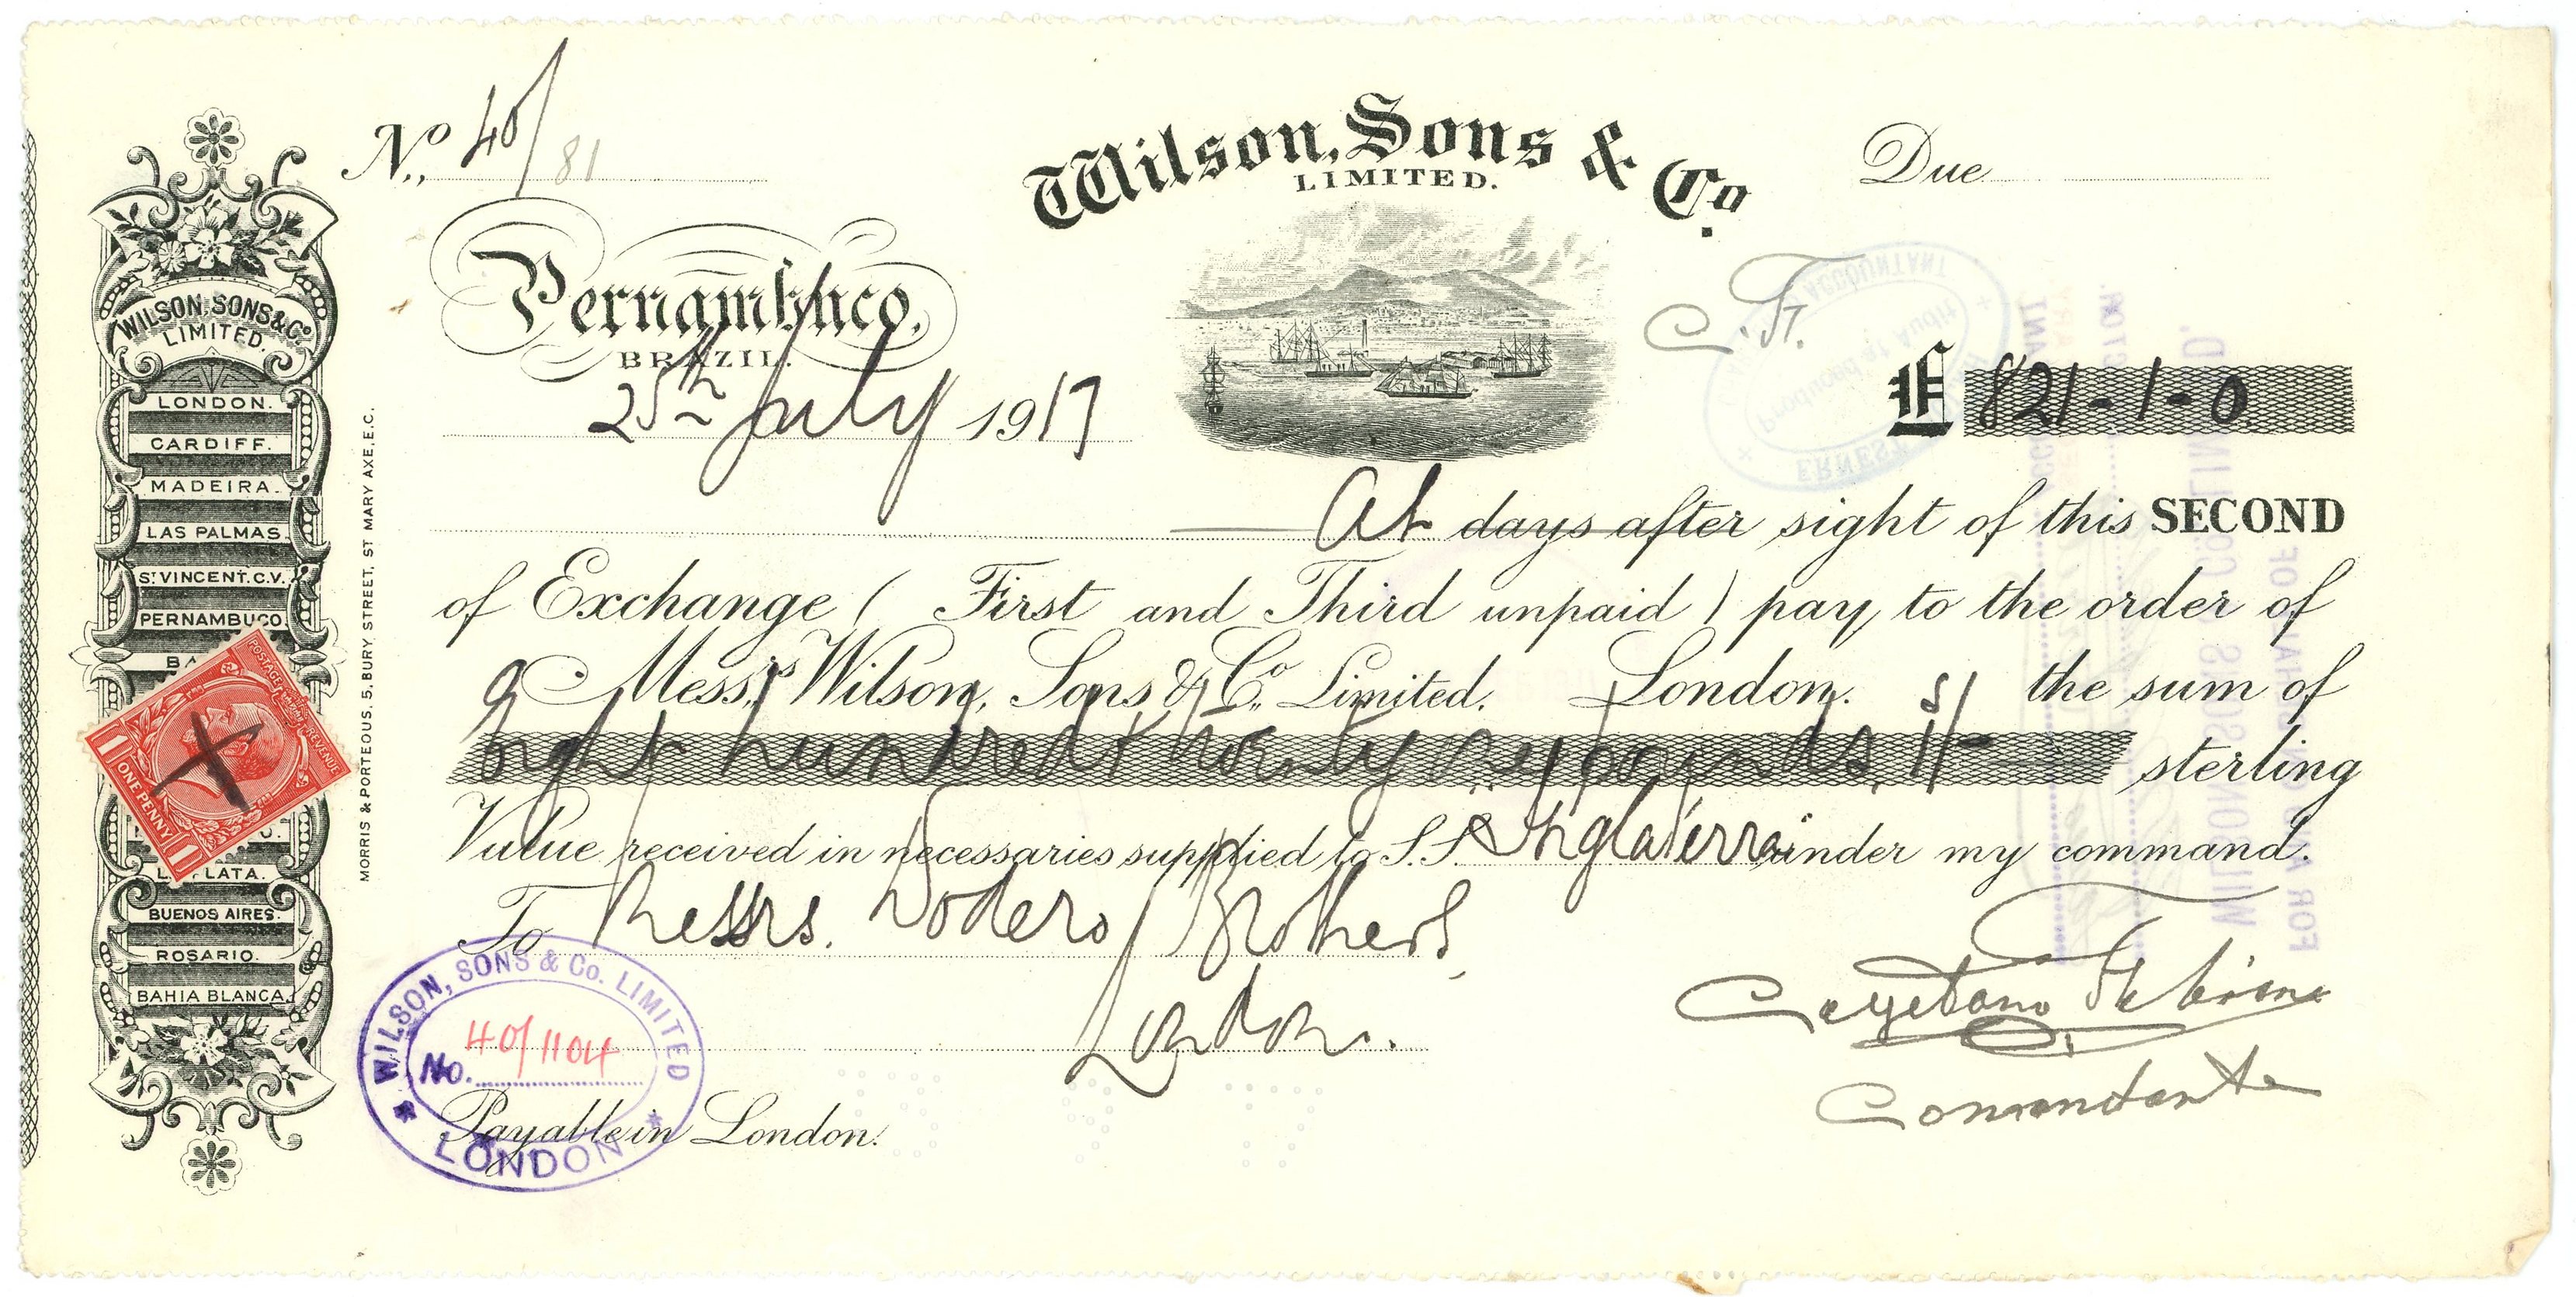 No. 40/81
Wilson, Sons & Co.
LIMITED.
Due
Pernambuco,
BRAZIL.
25th July 1917
C. F.
£ 821-1-0
At days after sight of this SECOND
of Exchange ( First and Third unpaid ) pay to the order of
Messrs. Wilson, Sons & Co. Limited. London. the sum of
Eight hundred twenty one pounds 1/- sterling
Value received in necessaries supplied to S.S. Inglaterra under my command.
To Messrs. Dodero Brothers,
London.
Payable in London.
Comandante
WILSON, SONS & Co.
LIMITED.
LONDON.
CARDIFF.
MADEIRA.
LAS PALMAS.
ST VINCENT. C.V.
PERNAMBUCO.
BA
LA PLATA.
BUENOS AIRES.
ROSARIO.
BAHIA BLANCA.
POSTAGE REVENUE
1 ONE PENNY 1
MORRIS & PORTEOUS, 5, BURY STREET, ST MARY AXE, E.C.
WILSON, SONS & Co. LIMITED
No. 40/1104
LONDON
ACCOUNTANT
Produced to Audit
ERNEST
FOR AND ON BEHALF OF
WILSON SONS & CO. LIMITED.